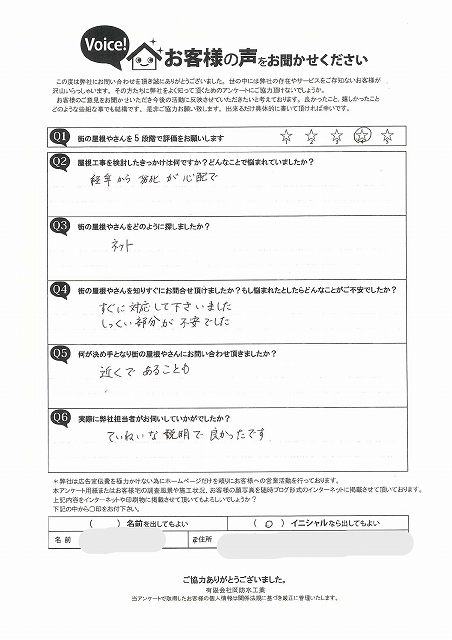 Voice! お客様の声をお聞かせください
この度は弊社にお問い合わせを頂き誠にありがとうございました。世の中には弊社の存在やサービスをご存知ないお客様が
沢山いらっしゃいます。その方たちに弊社をよく知って頂くためのアンケートにご協力頂けないでしょうか。
お客様のご意見をお聞かせいただき今後の活動に反映させていただきたいと考えております。良かったこと、嬉しかったこと
どのような些細な事でも結構です。是非ご協力お願い致します。出来るだけ具体的に書いて頂ければ幸いです。
Q1 街の屋根やさんを5段階で評価をお願いします
1 2 3 4 5
Q2 屋根工事を検討したきっかけは何ですか？どんなことで悩まれていましたか？
経年から劣化が心配で
Q3 街の屋根やさんをどのように探しましたか？
ネット
Q4 街の屋根やさんを知りすぐにお問合せ頂けましたか？もし悩まれたとしたらどんなことがご不安でしたか？
すぐに対応して下さいました
しっくい部分が不安でした
Q5 何が決め手となり街の屋根やさんにお問い合わせ頂きましたか？
近くであることも
Q6 実際に弊社担当者がお伺いしていかがでしたか？
ていねいな説明で良かったです
＊弊社は広告宣伝費を極力かけない為にホームページだけを頼りにお客様への営業活動を行っております。
本アンケート用紙またはお客様宅の調査風景や施工状況、お客様の顔写真を随時ブログ形式のインターネットに掲載させて頂いております。
上記内容をインターネットや印刷物に掲載させて頂いてもよろしいでしょうか？
下記の中から〇印をお付下さい。
（ ）名前を出してもよい （ 〇 ）イニシャルなら出してもよい
名前 ご住所
ご協力ありがとうございました。
有限会社岡防水工業
当アンケートで取得したお客様の個人情報は関係法規に基づき厳正に管理いたします。